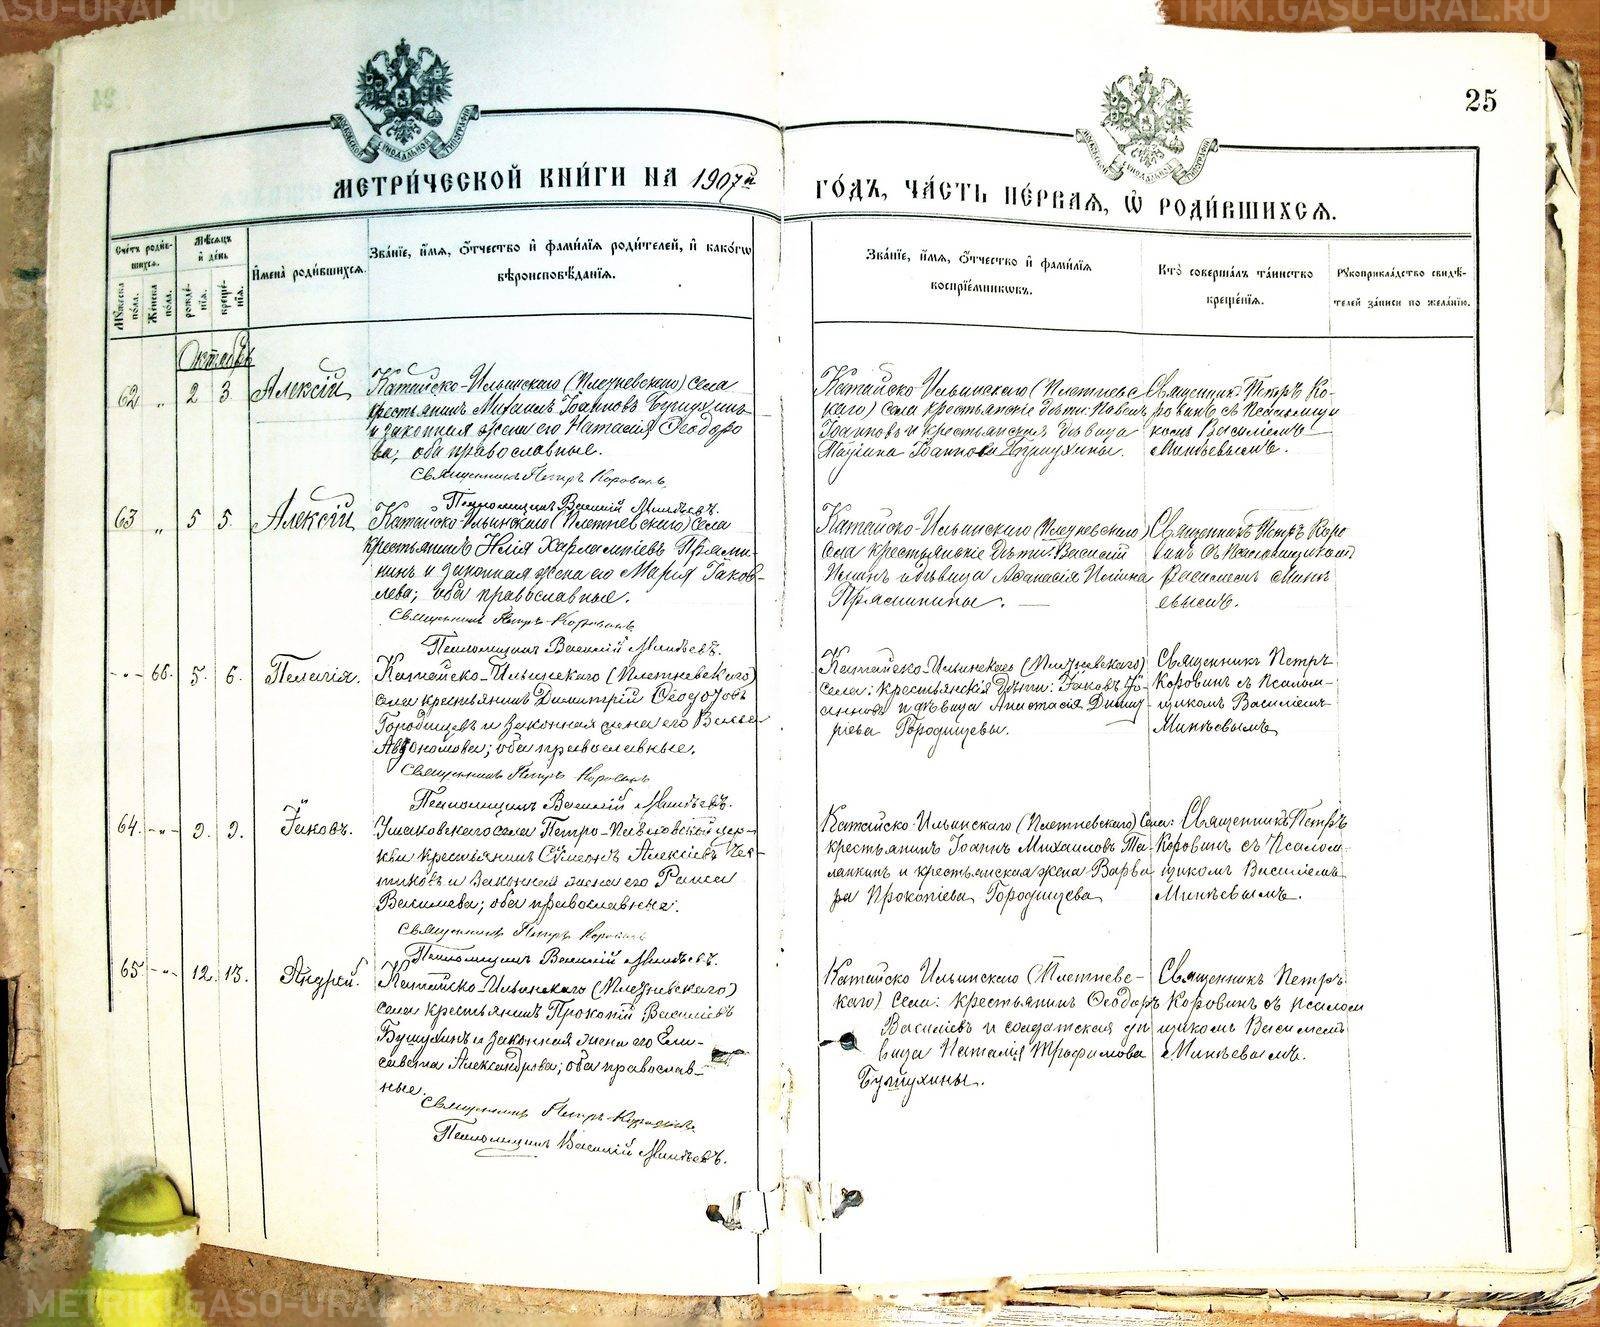 METRIKI.GASO-URAL.RU
25
МОСКОВСКОЙ СѴНОДАЛЬНОЙ ТИПОГРАФІИ
МЕТРИ́ЧЕСКОЙ КНИ́ГИ НА 1907й
ГО́ДЪ, ЧА́СТЬ ПЕ́РВАЯ, Ѽ РОДИ́ВШИХСЯ.
Сче́тъ роди́вшихся.
Му́жеска по́ла.
Же́нска по́ла.
Мѣ́сяцъ и҆ де́нь
рожде́нія.
креще́нія.
И҆мена̀ роди́вшихся.
Зва́ніе, и҆́мя, ѻ҆́тчество и҆ фами́лія роди́телей, и҆ како́гѡ вѣроисповѣ́данія.
Зва́ніе, и҆́мя, ѻ҆́тчество и҆ фами́лія воспріе́мникѡвъ.
Кто̀ соверша́лъ та́инство креще́нія.
Рукоприкла́дство свидѣ́телей за́писи по жела́нію.
Октябрь
62 „ 2 3 Алексій
Катайско-Ильинскаго (Плетневскаго) села
крестьянинъ Михаилъ Іоанновъ Бушухинъ
и законная жена его Наталія Ѳеодоро
ва; оба православные.
Священникъ Петръ Коровинъ.
Псаломщикъ Василій Минѣевъ.
Катайско-Ильинскаго (Плетневс
каго) села крестьянскіе дѣти: Павелъ
Іоанновъ и крестьянская дѣвица
Іоаннова Бушухины.
Священникъ Петръ Ко-
ровинъ съ Псаломщи
комъ Василіемъ
Минѣевымъ.
63 „ 5 5. Алексій
Катайско-Ильинскаго (Плетневскаго) села
крестьянинъ Илія Харлампіевъ Прями-
нинъ и законная жена его Марія Іаков-
лева; оба православные.
Священникъ Петръ Коровинъ.
Псаломщикъ Василій Минѣевъ.
Катайско-Ильинскаго (Плетневскаго)
села крестьянскіе дѣти: Василій
Илiинъ и дѣвица Аѳанасія Иліина
Священникъ Петръ Коро-
винъ съ Псаломщикомъ
Василіемъ Минѣ
евымъ.
-„- 66. 5. 6. Пелагія.
Катайско-Ильинскаго (Плетневскаго)
села крестьянинъ Димитрій Ѳеодоровъ
Городищевъ и законная жена его
Автономова; оба православные.
Священникъ Петръ Коровинъ
Псаломщикъ Василій Минѣевъ.
Катайско-Ильинскаго (Плетневскаго)
села: крестьянскія дѣти: Іаковъ Іо-
анновъ и дѣвица Анастасія Димит-
ріева Городищевы.
Священникъ Петръ
Коровинъ съ Псалом-
щикомъ Василіемъ
Минѣевымъ
64. -„- 9. 9. Іаковъ.
Ушаковскаго села Петро-Павловской цер-
кви крестьянинъ Сѵмеонъ Алексіевъ
и законная жена его Раиса
Василіева; оба православные.
Священникъ Петръ Коровинъ
Псаломщикъ Василій Минѣевъ.
Катайско-Ильинскаго (Плетневскаго) села:
крестьянинъ Іоаннъ Михаиловъ Та-
ланкинъ и крестьянская жена Варва
ра Прокопіева Городищева
Священникъ Петръ
Коровинъ съ Псалом-
щикомъ Василіемъ
Минѣевымъ.
65. -„- 12. 13. Андрей.
Катайско-Ильинскаго (Плетневскаго)
села крестьянинъ Прокопій Василіевъ
Бушухинъ и законная жена его Ели-
савета Александрова; оба православ-
ные.
Священникъ Петръ Коровинъ.
Псаломщикъ Василій Минѣевъ.
Катайско Ильинскаго (Плетневс-
каго) села: крестьянинъ Ѳеодоръ
Василіевъ и солдатская дѣ
вица Наталія Трофимова
Бушухины.
Священникъ Петръ
Коровинъ съ псалом
щикомъ Василіемъ
Минѣевымъ.
METRIKI.GASO-URAL.RU